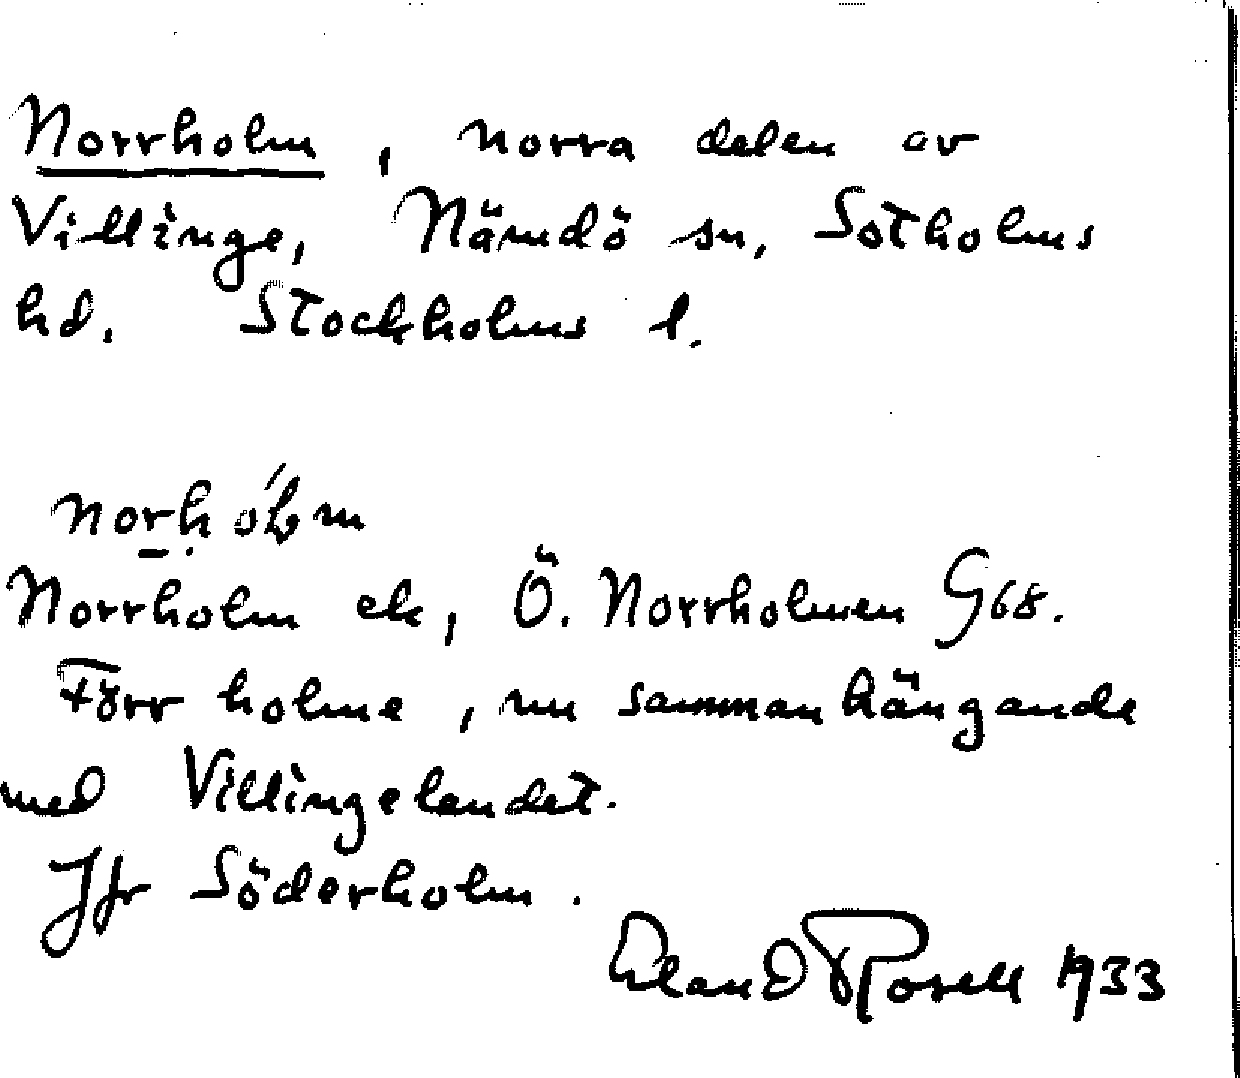 Norrholm, norra delen av
Villinge, Nämdö sn, Sotholms
hd. Stockholms l.
Norrholm ek, Ö. Norrholmen G68.
Förr holme, nu sammanhängande
med Villingelandet.
Jfr Söderholm.
Erland Rosell 1933